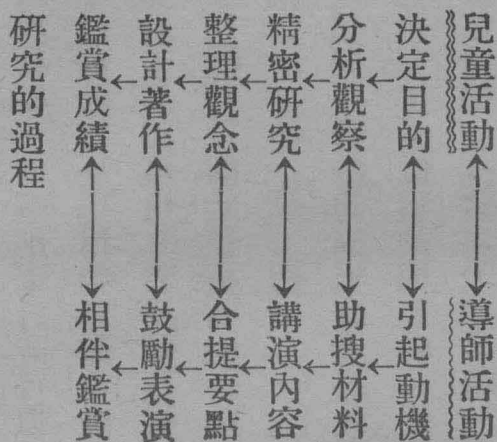 兒童活動 ←→ 導師活動
決定目的 ←→ 引起動機
分析觀察 ←→ 助搜材料
精密研究 ←→ 講演內容
整理觀念 ←→ 合提要點
設計著作 ←→ 鼓勵表演
鑑賞成績 ←→ 相伴鑑賞
研究的過程